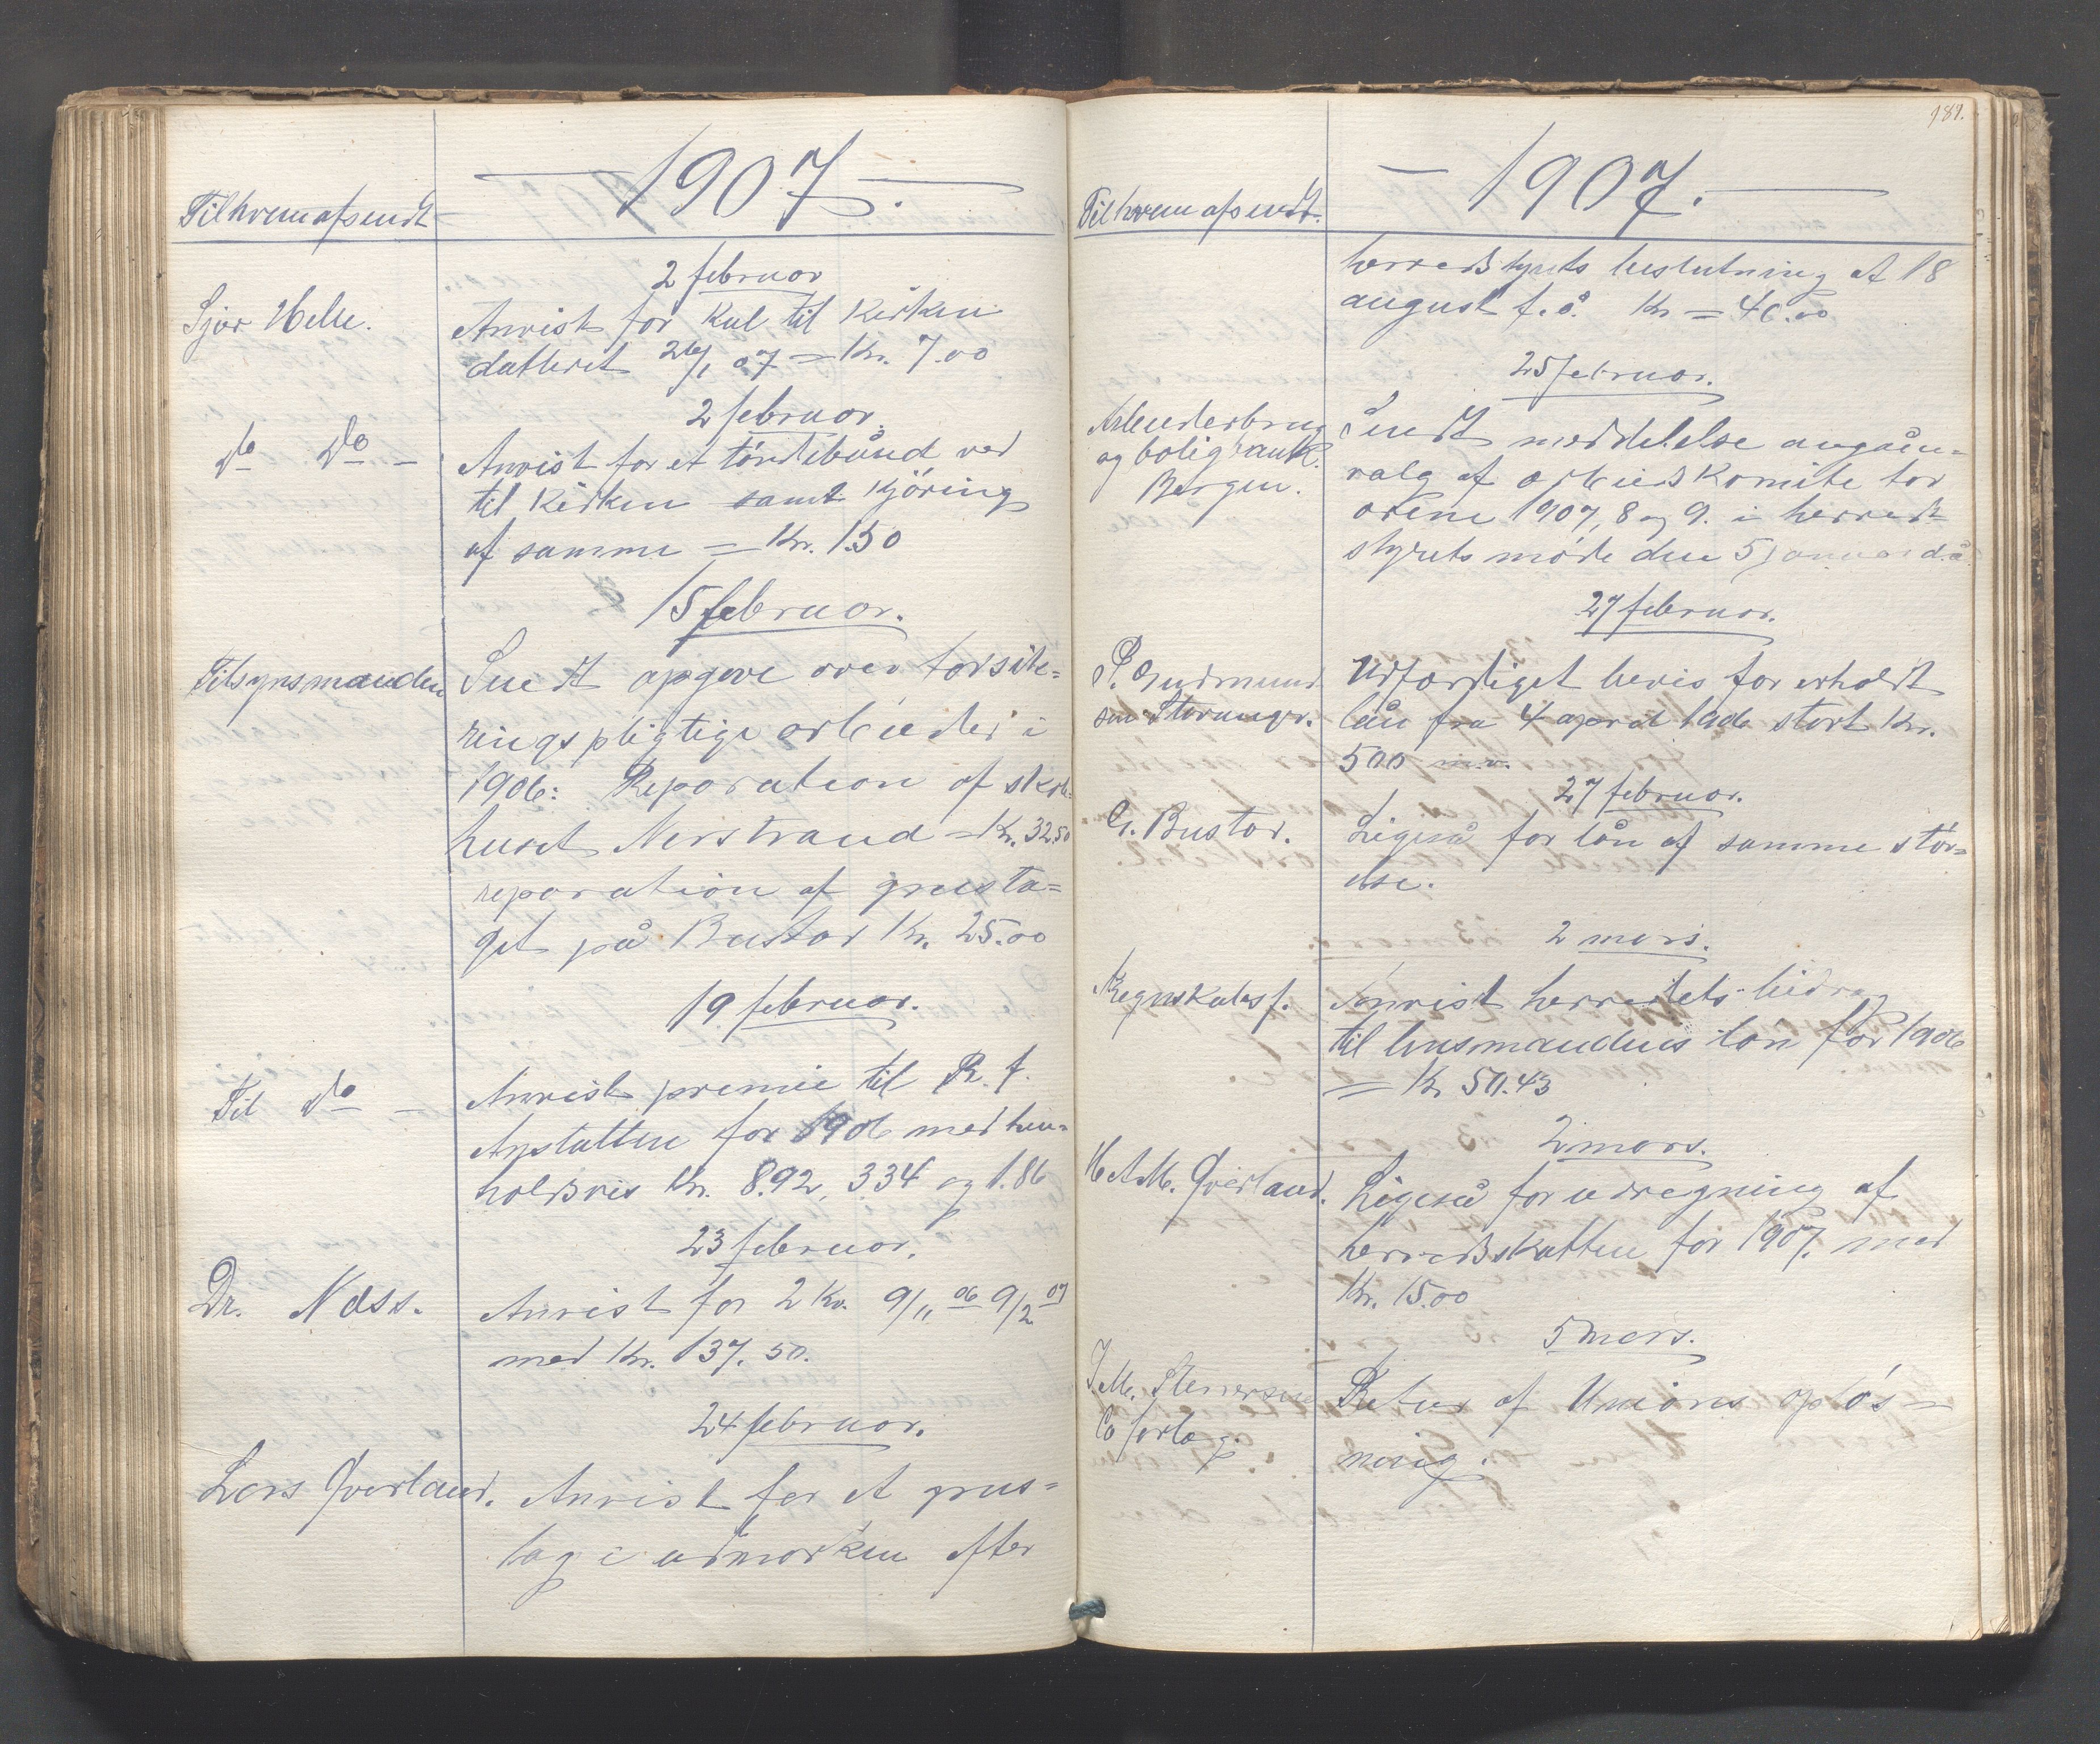 1907.
Til hvem afsendt
2 februar
Sjur Helle.
Anvist for kul til kirken
datteret 26/1 07 = Kr. 7.00
2 februar.
do do -
Anvist for et tøndebånd ved
til kirken samt kjøring
af samme = Kr. 1.30
15 februar.
Tilsynsmanden
Sendt opgave over forsik=
ringspligtige arbeider i
1906: Reparation af skole
huset Nerstrand = Kr. 32.50
reparation af grusta=
get på Bustad Kr. 25.00
19 februar.
Til do -
Anvist premie til R. f.
Anstalten for 1906 med hen=
holdsvis Kr. 8.92, 334 og 1.86
23 februar.
Dr. Næss.
Anvist for 2 Kv. 9/11 06 9/2 07
med Kr. 137.50.
24 februar.
Lars Qverland.
Anvist for et grus=
tag i udmarken efter
189.
1907.
Til hvem afsendt.
herredstyrets beslutning af 18
august f. å. Kr = 40.00
25 februar.
Arbeiderbrug
og boligbank.
Bergen.
Sendt meddelelse angåen=
valg af arbeidskomite for
årene 1907, 8 og 9. i herreds=
styrets møde den 5 januar d.å.
27 februar.
P. Gudmund
sen Stavanger.
Udfærdiget bevis for erholdt
lån fra 4 april 1906 stort Kr.
500 m.v.
27 februar.
G. Bustad.
Ligeså for lån af samme stør=
else.
2 mars.
Regnskabsf.
Anvist herredets bidrag
til lensmandens løn for 1906
= Kr 50.43
2 mars.
H. A. M. Qverland.
Ligeså for udregning af
herredsskatten for 1907. med
Kr. 15.00
5 mars.
J. M. Stenersen
Co forlag.
Retur af Unions opløs=
ning.